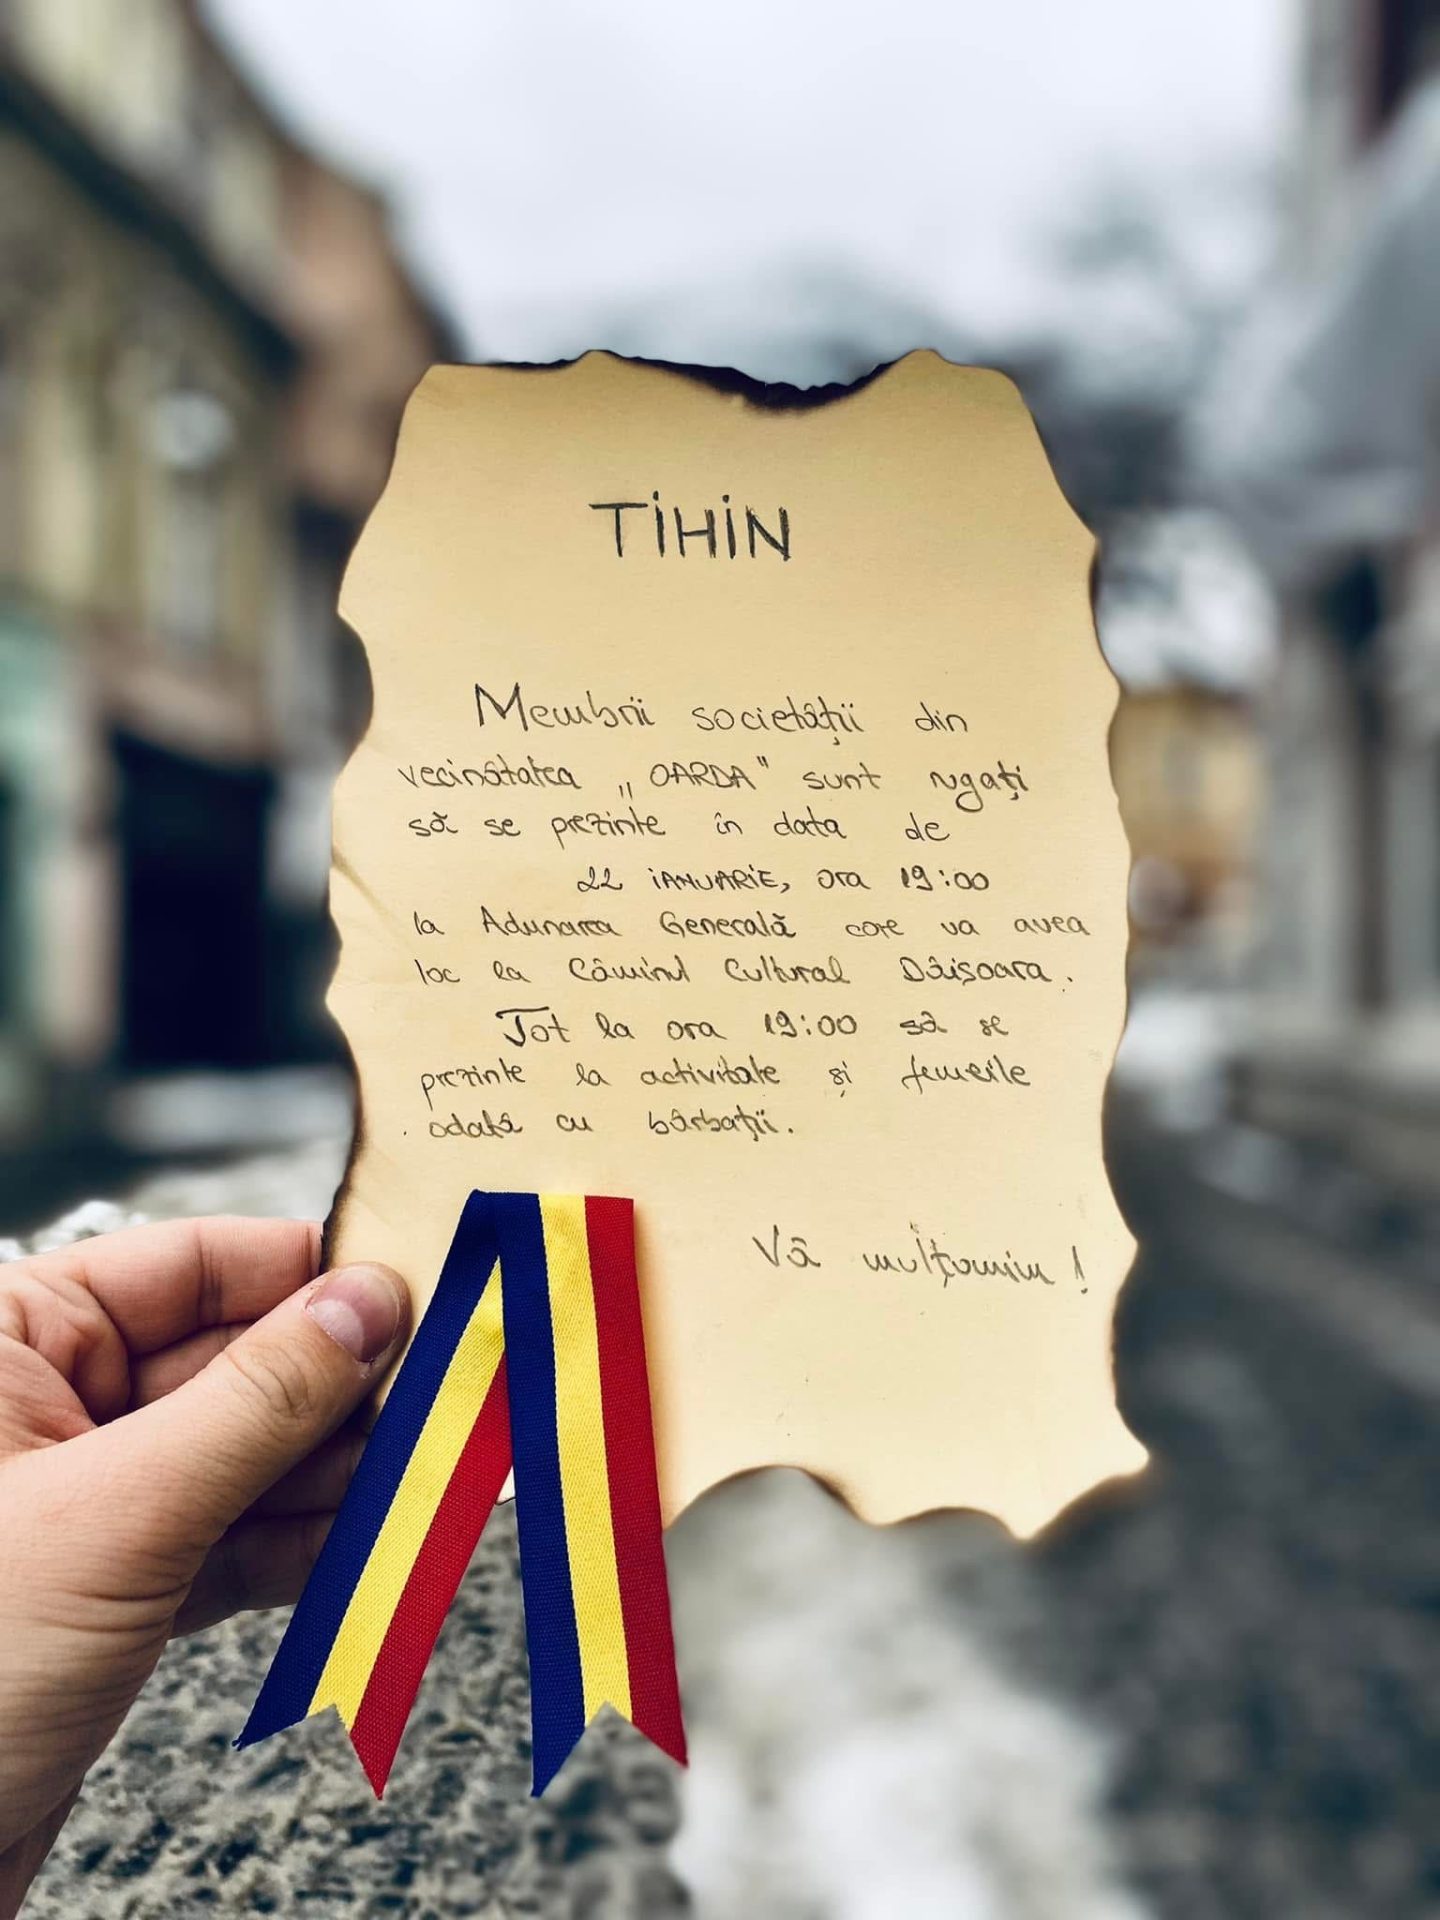 TİHİN
Membrii societății din
vecinătatea „OARDA" sunt rugați
să se prezinte în data de
22 IANUARIE, ora 19:00
la Adunarea Generală care va avea
loc la Căminul Cultural Dăișoara.
Tot la ora 19:00 să se
prezinte la activitate și femeile
odată cu bărbații.
Vă mulțumim!